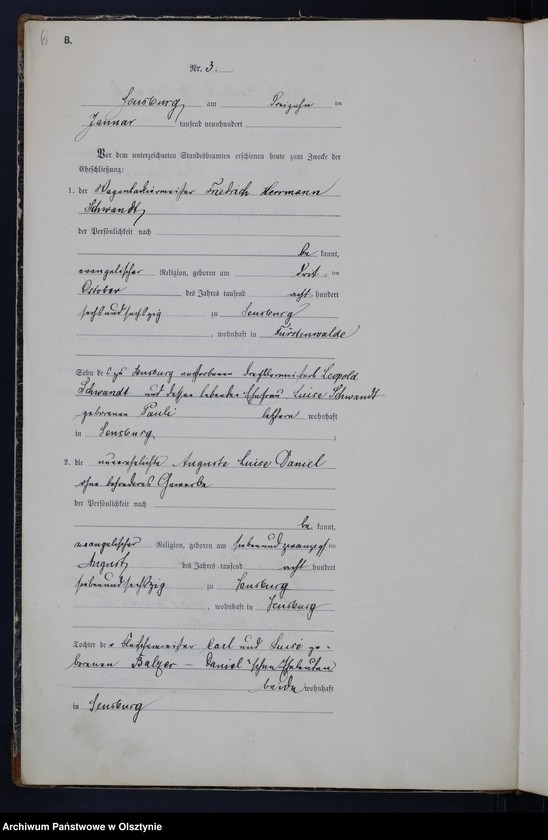 6
B.
Nr. 3.
Sensburg am Dreizehn ten
Januar tausend neunhundert
Vor dem unterzeichneten Standesbeamten erschienen heute zum Zwecke der
Eheschließung:
1. der Wagenlackirermeister Friedrich Herrmann
Schwandt
der Persönlichkeit nach
be kannt,
evangelischer Religion, geboren am ten
October des Jahres tausend acht hundert
sechsundsechszig zu Sensburg
, wohnhaft in Fürstenwalde
Sohn des zu Sensburg verstorbenen Drechslermeisters Leopold
Schwandt und dessen lebender Ehefrau Luise Schwandt
geborenen Pauli letztere wohnhaft
in Sensburg ;
2. die unverehelichte Auguste Luise Daniel
ohne besonderes Gewerbe
der Persönlichkeit nach
be kannt,
evangelischer Religion, geboren am siebenundzwanzigsten
August des Jahres tausend acht hundert
siebenundsechszig zu Sensburg
, wohnhaft in Sensburg
Tochter der Fleischermeister Carl und Luise ge-
borenen Balzer - Daniel'schen Eheleuten
beide wohnhaft
in Sensburg
Archiwum Państwowe w Olsztynie